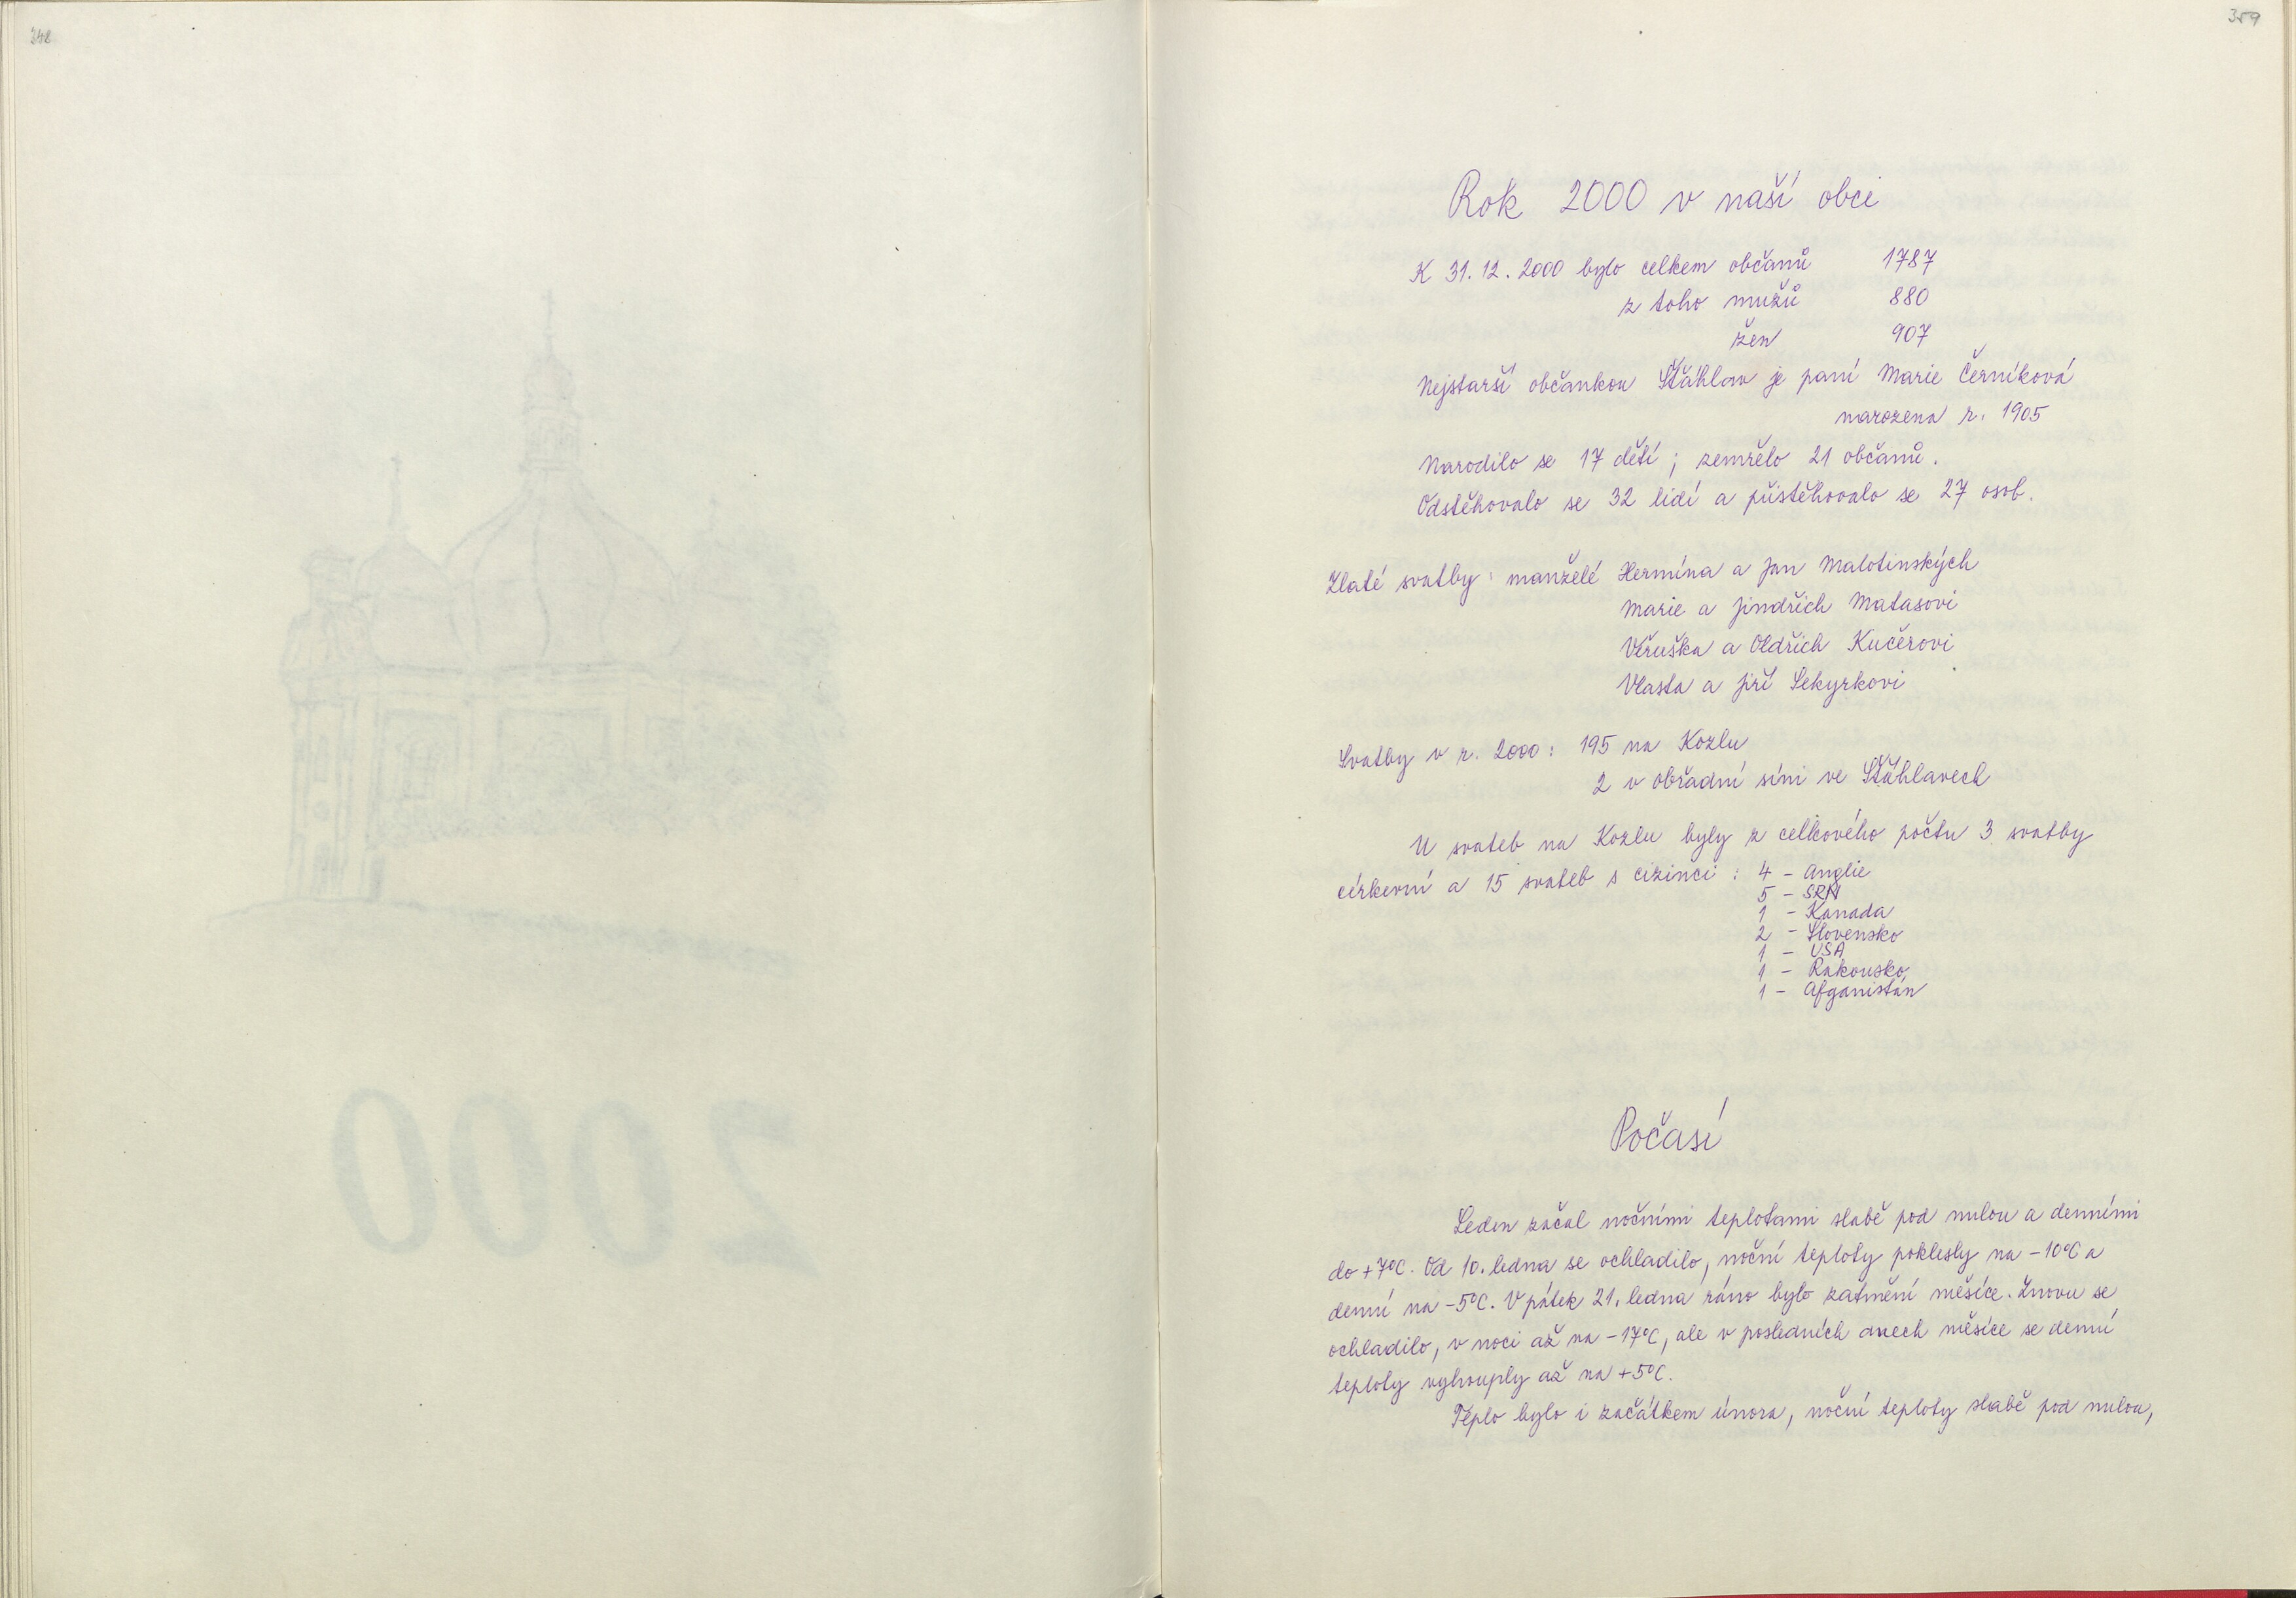 348
359
Rok 2000 v naší obci
K 31. 12. 2000 bylo celkem občanů 1787
z toho mužů 880
žen 907
Nejstarší občankou Šťáhlav je paní Marie Černíková
narozena r. 1905
Narodilo se 17 dětí ; zemřelo 21 občanů.
Odstěhovalo se 32 lidí a přistěhovalo se 27 osob.
Zlaté svatby : manželé Hermína a Jan Malotinských
Marie a Jindřich Matasovi
Věruška a Oldřich Kučerovi
Vlasta a Jiří Sekyrkovi
Svatby v r. 2000 : 195 na Kozlu
2 v obřadní síni ve Šťáhlavech
U svateb na Kozlu byly z celkového počtu 3 svatby
církevní a 15 svateb s cizinci : 4 - Anglie
5 - SRN
1 - Kanada
2 - Slovensko
1 - USA
1 - Rakousko,
1 - Afganistán
Počasí
Leden začal nočními teplotami slabě pod nulou a denními
do +7°C. Od 10. ledna se ochladilo, noční teploty poklesly na -10°C a
denní na -5°C. V pátek 21. ledna ráno bylo zatmění měsíce. Znovu se
ochladilo, v noci až na -17°C, ale v posledních dnech měsíce se denní
teploty vyhouply až na +5°C.
Teplo bylo i začátkem února, noční teploty slabě pod nulou,
2000